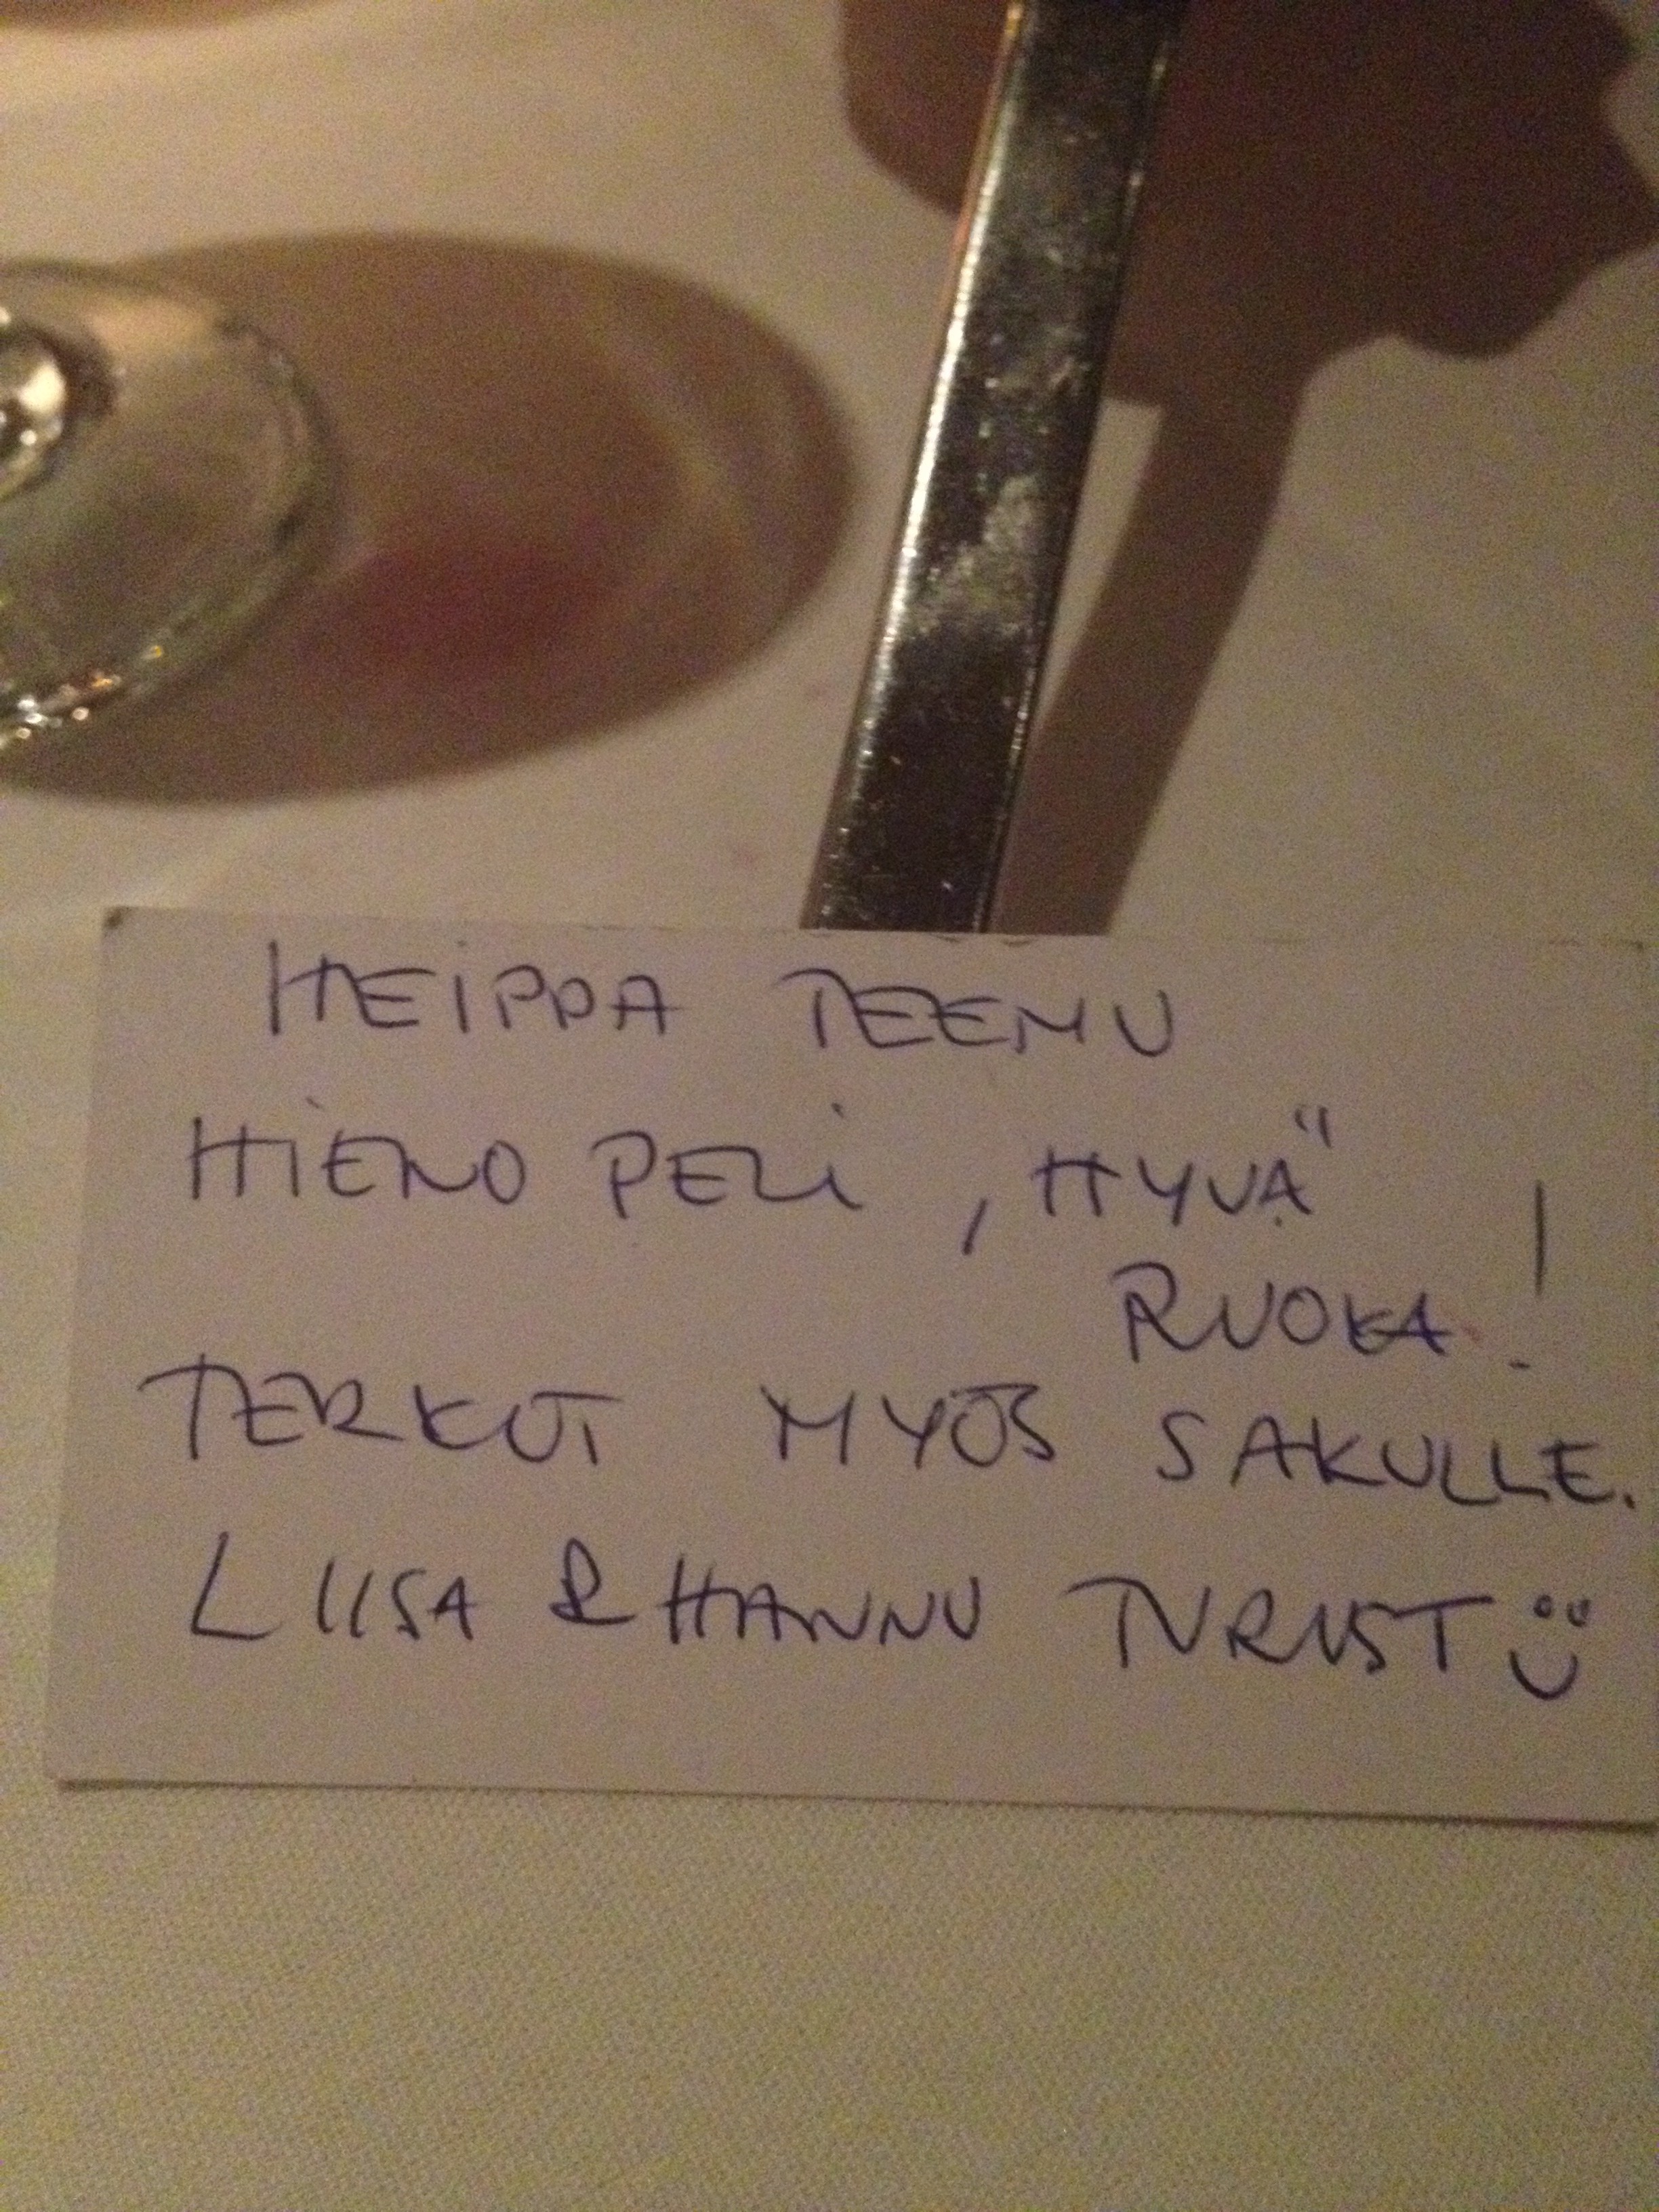 HEIPPA TEEMU
HIENO PELI , HYVÄ
RUOKA !
TERKUT MYÖS SAKULLE.
LIISA & HANNU